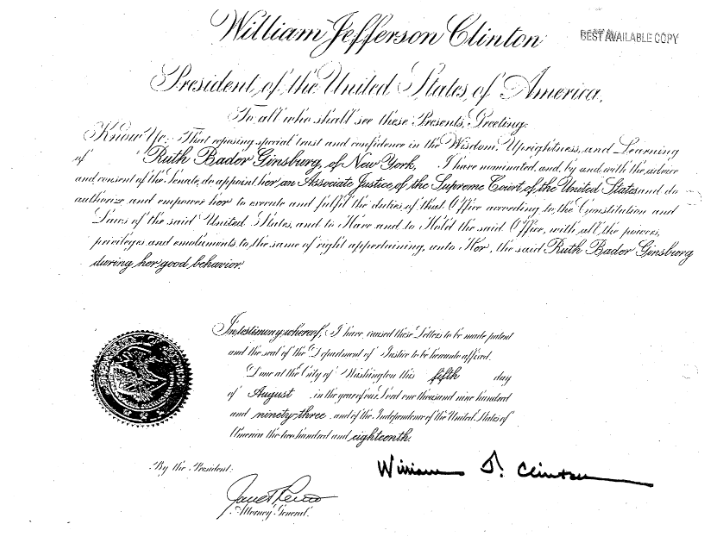 William Jefferson Clinton
BEST AVAILABLE COPY
President of the United States of America.
To all who shall see these Presents, Greeting:
Know Ye, That reposing special trust and confidence in the Wisdom, Uprightness, and Learning
of Ruth Bador Ginsburg, of New York, I have nominated, and, by and with the advice
and consent of the Senate, do appoint her, an Associate Justice of the Supreme Court of the United States and do
authorize and empower her to execute and fulfil the duties of that Office according to the Constitution and
Laws of the said United States, and to Have and to Hold the said Office, with all the powers,
privileges and emoluments to the same of right appertaining, unto Her, the said Ruth Bador Ginsburg
during her good behavior.
In testimony whereof, I have caused these Letters to be made patent
and the seal of the Department of Justice to be hereunto affixed.
Done at the City of Washington this fifth day
of August in the year of our Lord one thousand nine hundred
and ninety-three, and of the Independence of the United States of
America the two hundred and eighteenth.
By the President:
William J. Clinton
Janet Reno
Attorney General.